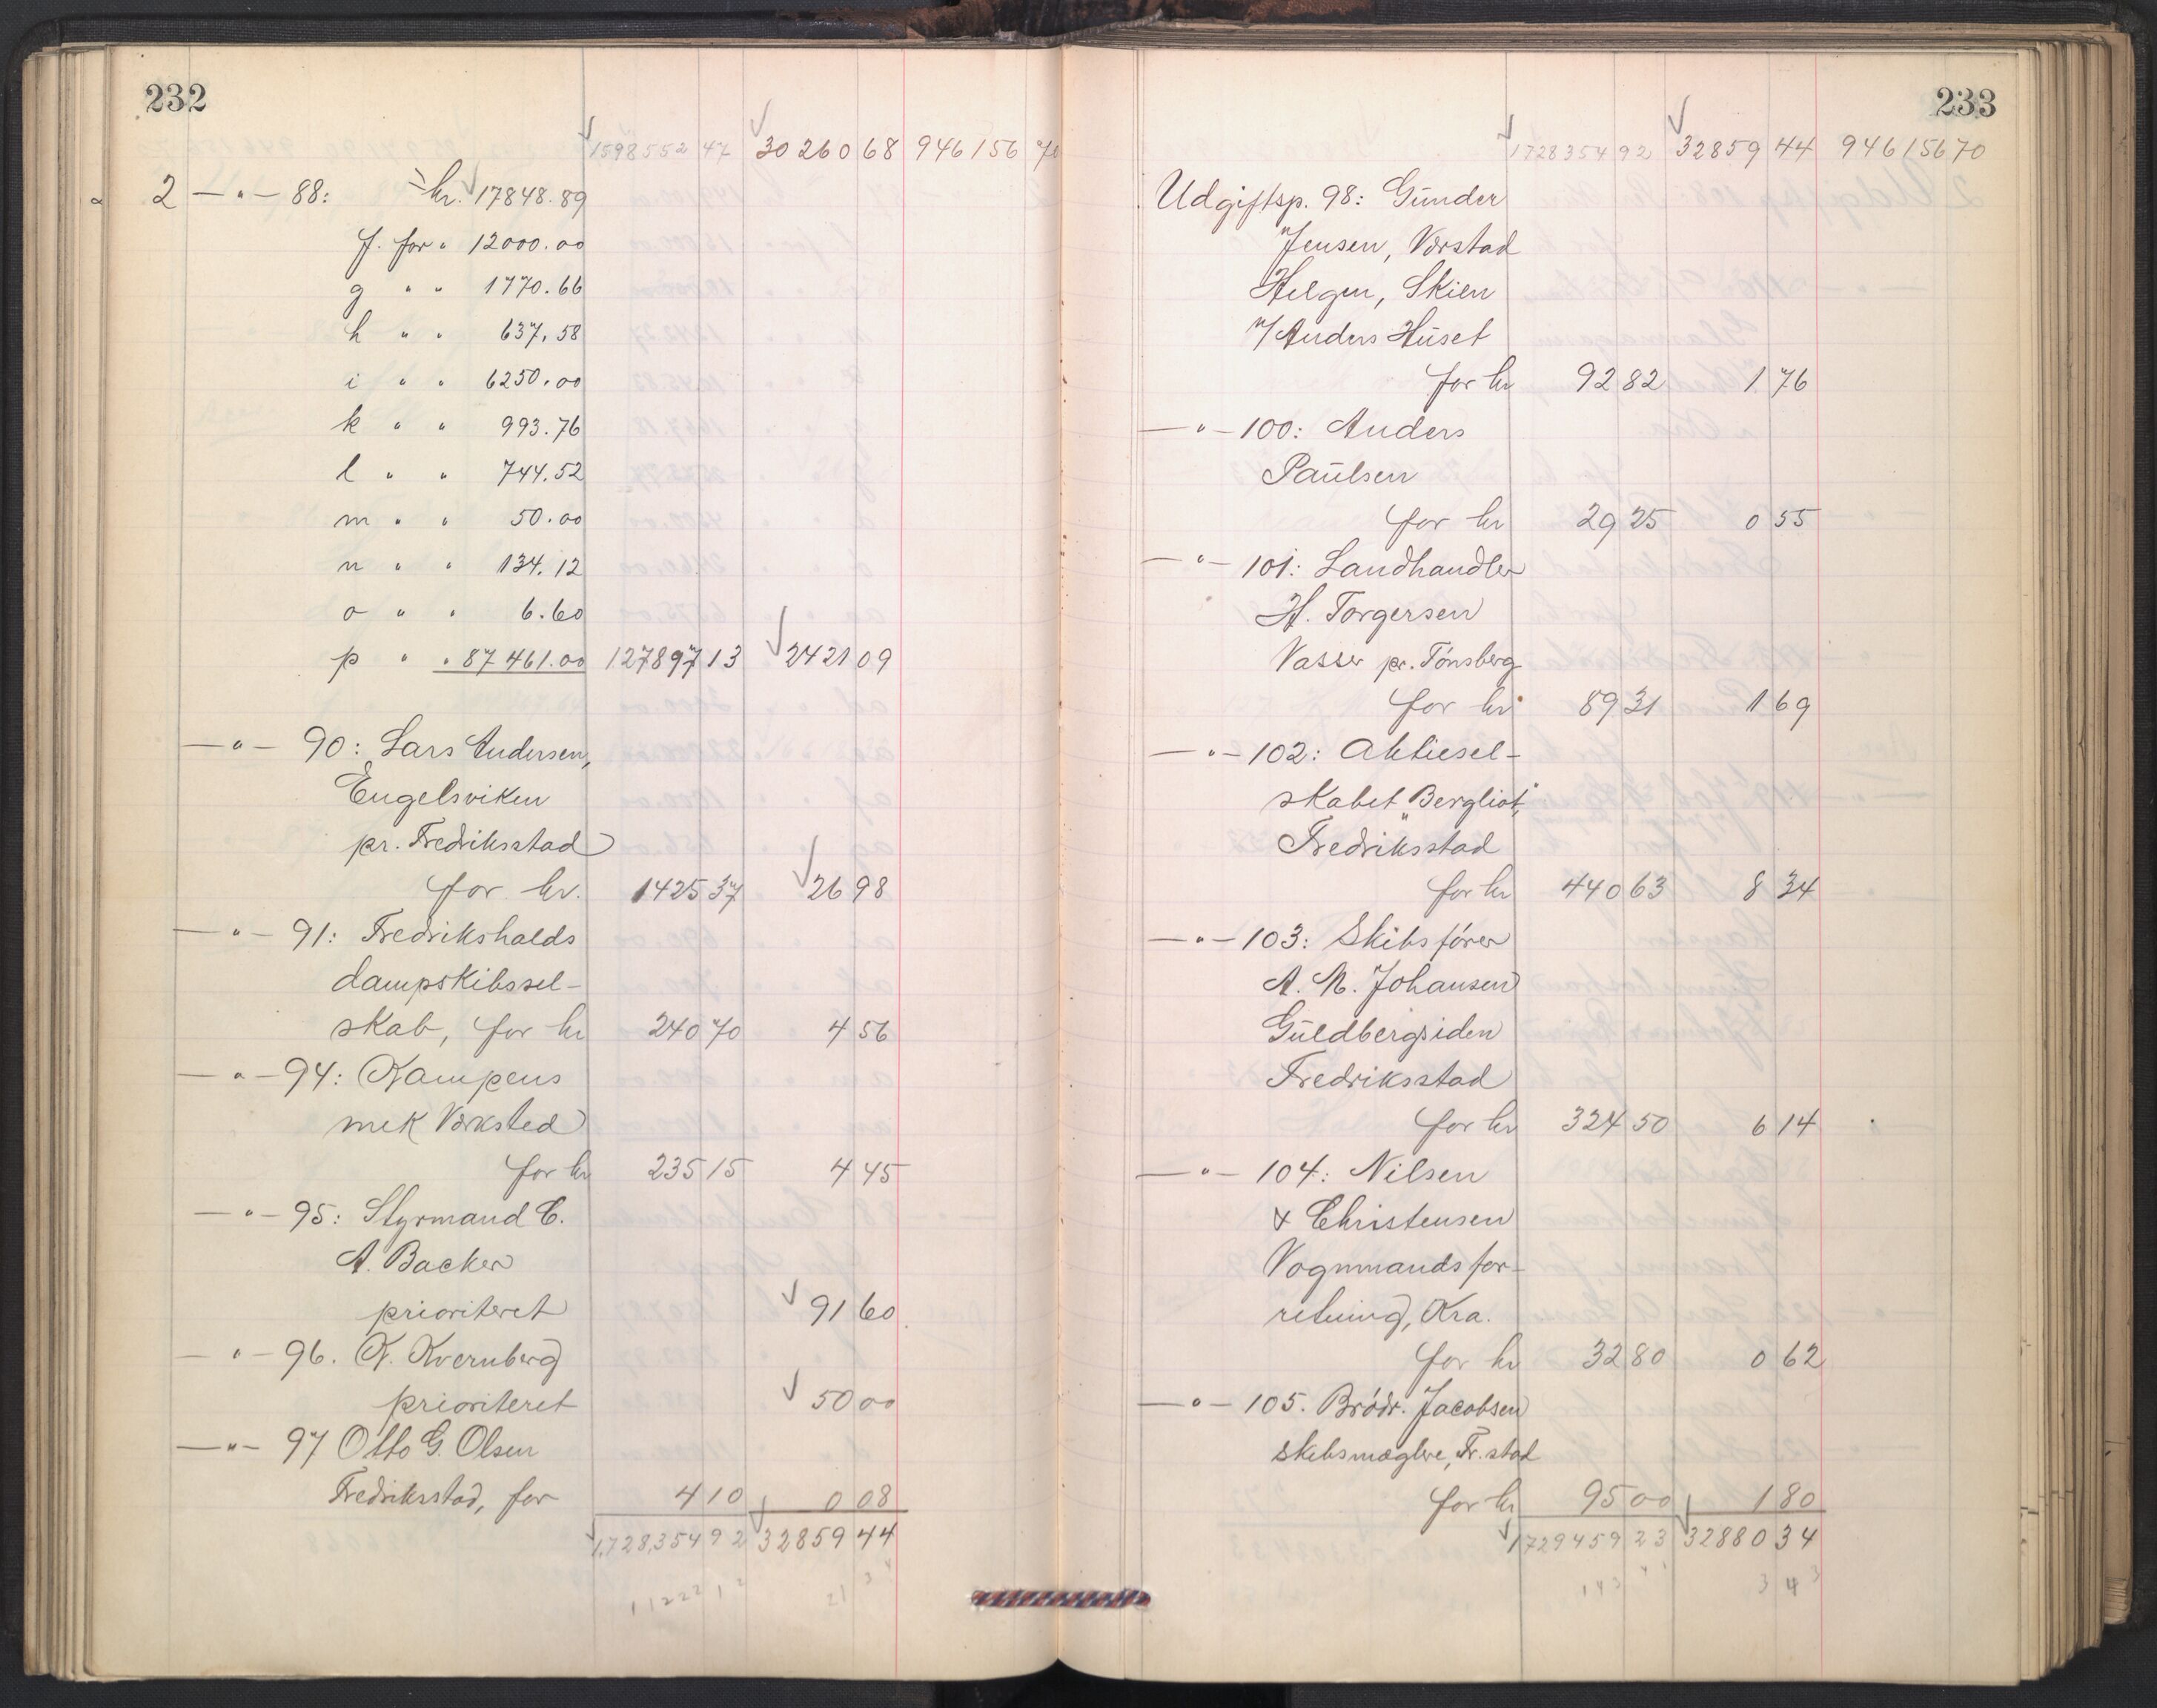 232
1598552 47 30260 68 946156 70
2 — " — 88: kr. 17848.89
f. for " 12000.00
g " " 1770.66
h " " 637.58
i " " 6250.00
k " " 993.76
l " " 744.52
m " " 50.00
n " " 134.12
o " " 6.60
p " " 87461.00 127897 13 2421 09
— " — 90: Lars Andersen,
Engelsviken
pr. Fredriksstad
for kr. 1425 37 26 98
— " — 91: Fredrikshalds
dampskibssel-
skab, for kr 240 70 4 56
— " — 94: Kampens
mek Værksted
for kr 235 15 4 45
— " — 95: Styrmand C.
A. Backer
prioriteret 91 60
— " — 96. K. Kvernberg
prioriteret 50 00
— " — 97 Otto G. Olsen
Fredriksstad, for 4 10 0 08
1,728,354 92 32859 44
233
1728354 92 32859 44 946156 70
Udgiftsp. 98: Gunder
Jensen, Værstad
Helgen, Skien
v/ Anders Huset
for kr 92 82 1 76
— " — 100: Anders
Paulsen
for kr 29 25 0 55
— " — 101: Landhandler
H. Torgersen
Vasser pr. Tönsberg
for kr 89 31 1 69
— " — 102: Aktiesel-
skabet "Bergliot",
Fredriksstad
for kr 440 63 8 34
— " — 103: Skibsförer
A. M. Johansen
Guldbergsiden
Fredriksstad
for kr 324 50 6 14
— " — 104: Nilsen
& Christensen
Vognmandsfor-
retning, Kra.
for kr 32 80 0 62
— " — 105. Brödr. Jacobsen
Skibsmæglere, Fr.stad
for kr 95 00 1 80
1729459 23 32880 34